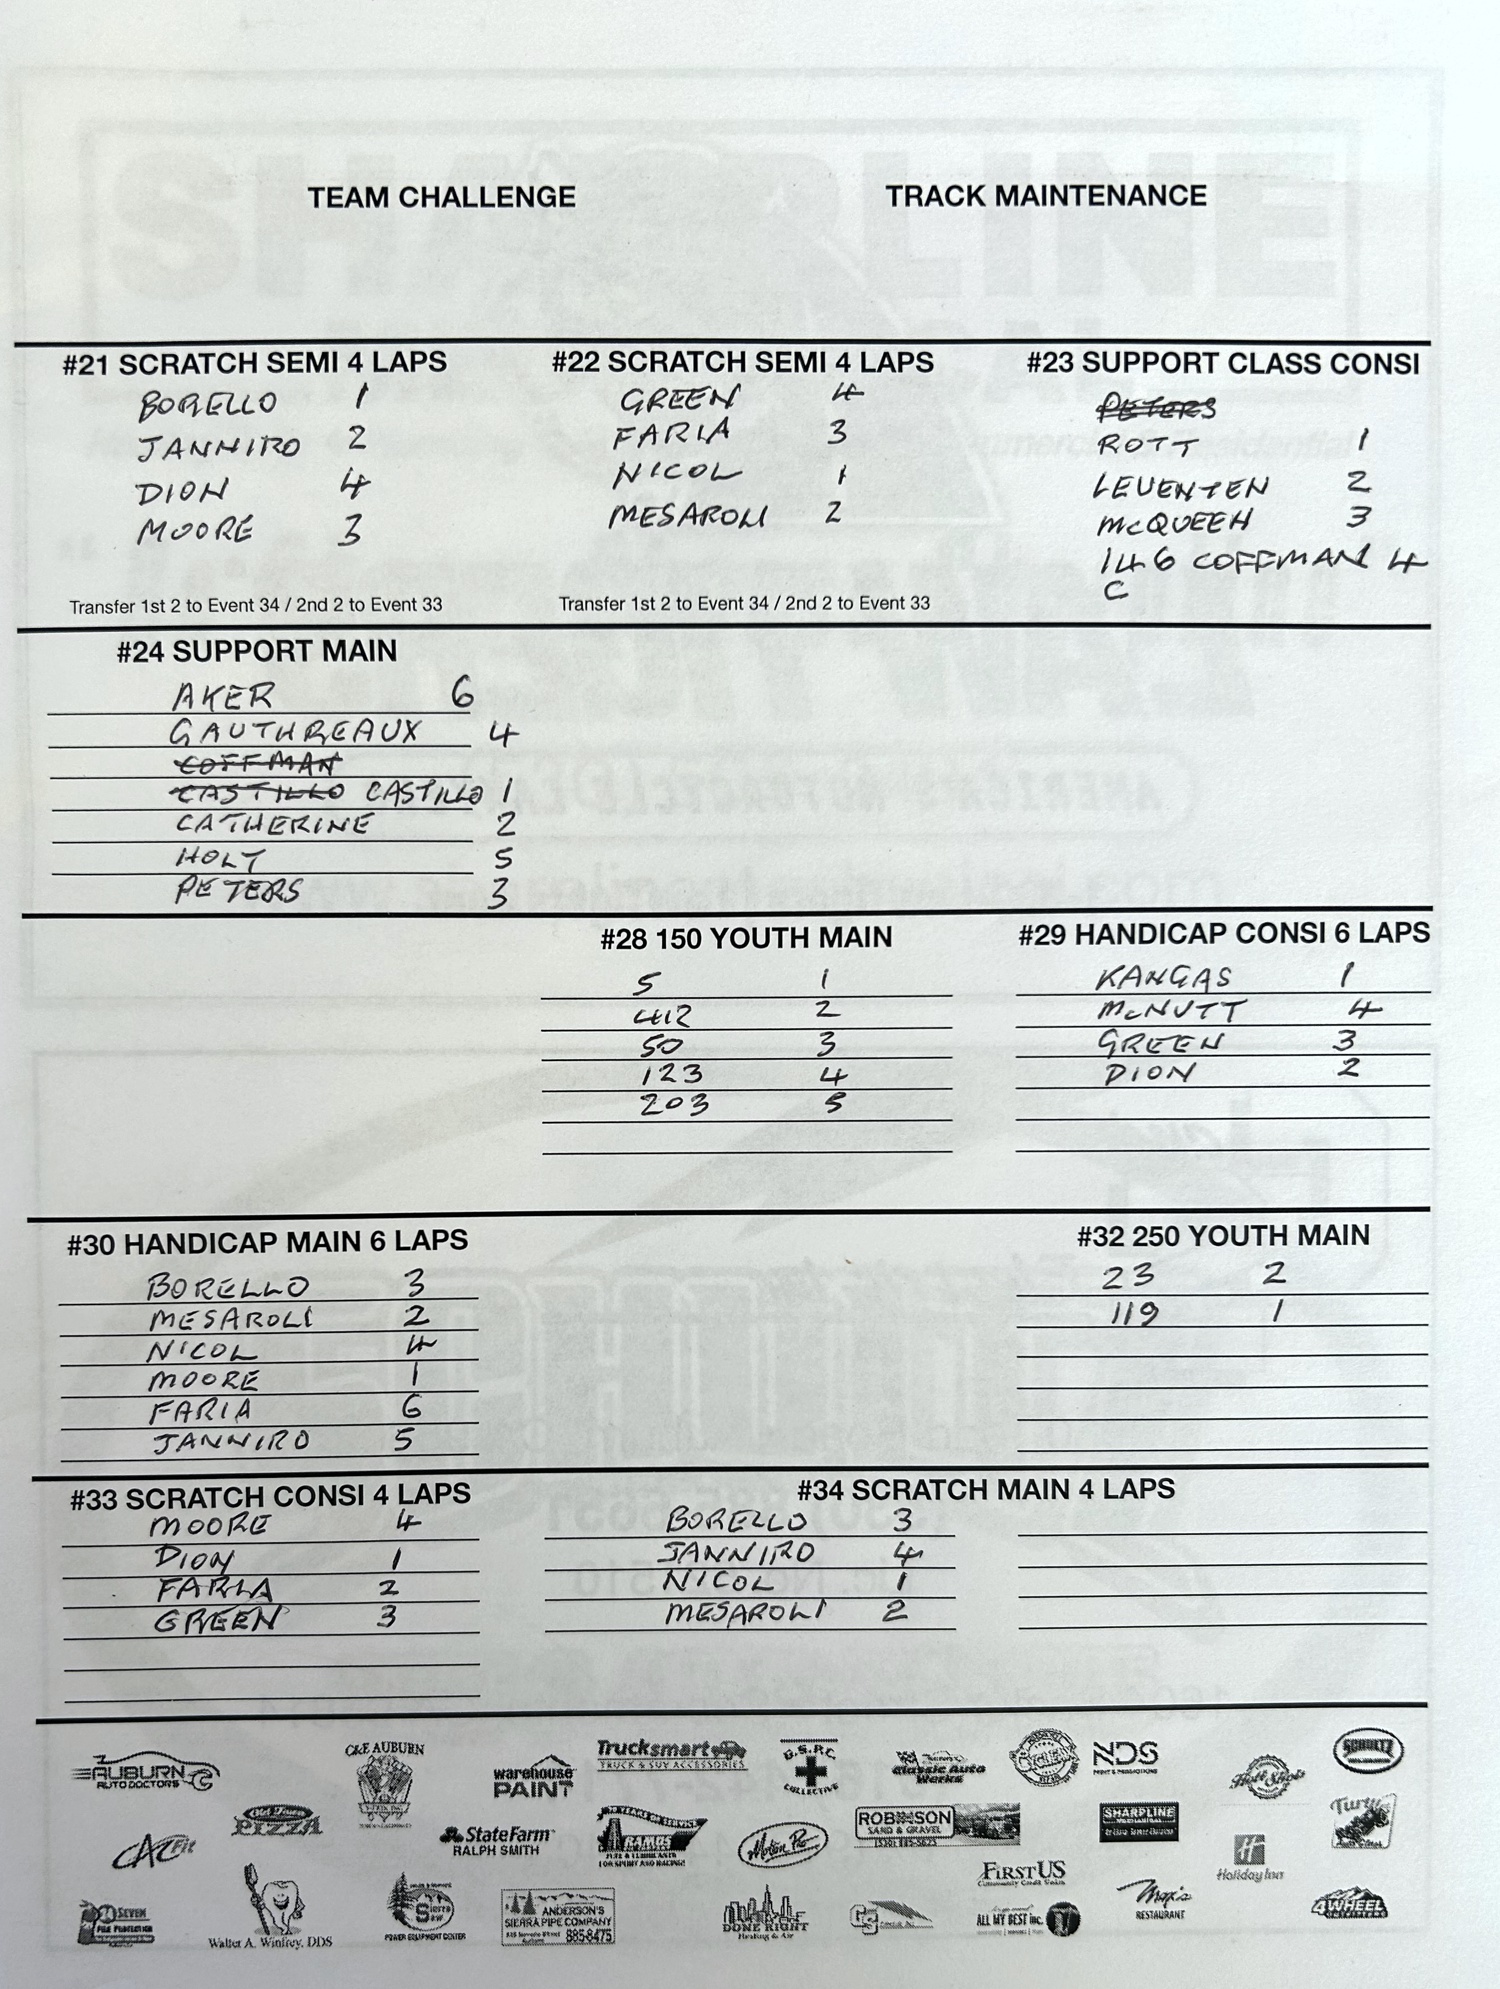 TEAM CHALLENGE
TRACK MAINTENANCE
#21 SCRATCH SEMI 4 LAPS
BORELLO 1
JANNIRO 2
DION 4
MOORE 3
Transfer 1st 2 to Event 34 / 2nd 2 to Event 33
#22 SCRATCH SEMI 4 LAPS
GREEN 4
FARIA 3
NICOL 1
MESAROLI 2
Transfer 1st 2 to Event 34 / 2nd 2 to Event 33
#23 SUPPORT CLASS CONSI
PETERS
ROTT 1
LEVENTEN 2
McQUEEN 3
146 COFFMAN 4
C
#24 SUPPORT MAIN
AKER 6
GAUTHREAUX 4
COFFMAN
CASTILLO CASTILLO 1
CATHERINE 2
HOLT 5
PETERS 3
#28 150 YOUTH MAIN
5 1
412 2
50 3
123 4
203 5
#29 HANDICAP CONSI 6 LAPS
KANGAS 1
McNUTT 4
GREEN 3
DION 2
#30 HANDICAP MAIN 6 LAPS
BORELLO 3
MESAROLI 2
NICOL 4
MOORE 1
FARIA 6
JANNIRO 5
#32 250 YOUTH MAIN
23 2
119 1
#33 SCRATCH CONSI 4 LAPS
MOORE 4
DION 1
FARIA 2
GREEN 3
#34 SCRATCH MAIN 4 LAPS
BORELLO 3
JANNIRO 4
NICOL 1
MESAROLI 2
AUBURN
AUTO DOCTORS
C&E AUBURN
warehouse
PAINT
Trucksmart
TRUCK & SUV ACCESSORIES
G.S.R.C.
COLLECTIVE
Classic Auto
Werks
NDS
PRINT & PROMOTIONS
Hot Shots
SCHULTZ
CAL Fit
Old Town
PIZZA
StateFarm
RALPH SMITH
RAMOS
Motion Pro
ROBINSON
SAND & GRAVEL
(530) 885-5625
SHARPLINE
Holiday Inn
SEVEN
FIRE PROTECTION
Walter A. Winfrey, DDS
Sierra
Saw
POWER EQUIPMENT CENTER
ANDERSON'S
SIERRA PIPE COMPANY
885-8475
DONE RIGHT
Heating & Air
FIRST US
Community Credit Union
ALL MY BEST inc.
Max's
RESTAURANT
4WHEEL